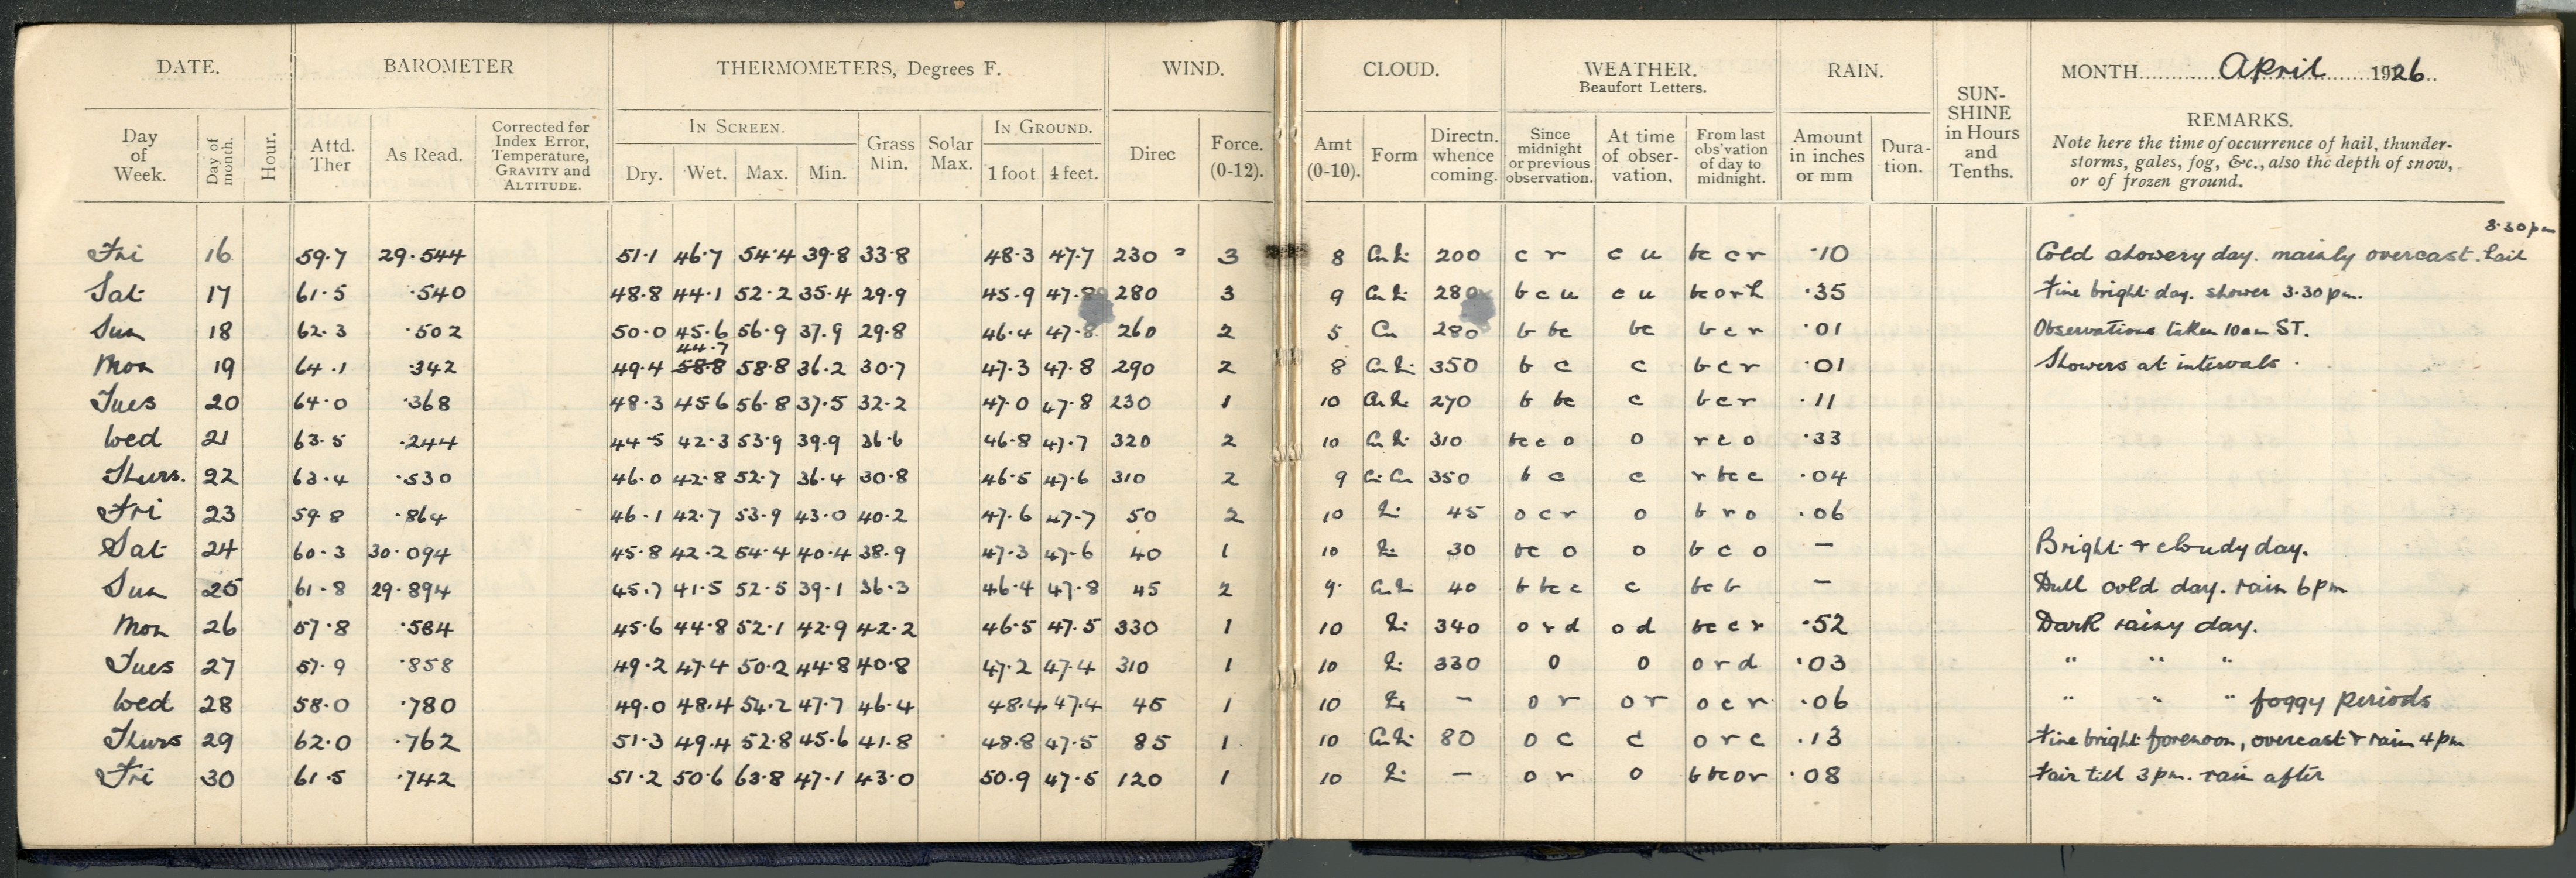 DATE. BAROMETER THERMOMETERS, Degrees F. WIND. CLOUD. WEATHER. Beaufort Letters. RAIN. SUN-SHINE in Hours and Tenths. MONTH April 1926
REMARKS.
Note here the time of occurrence of hail, thunder-
storms, gales, fog, &c., also the depth of snow,
or of frozen ground.
IN SCREEN. IN GROUND.
Day of Week. Day of month. Hour. Attd. Ther As Read. Corrected for Index Error, Temperature, GRAVITY and ALTITUDE. Dry. Wet. Max. Min. Grass Min. Solar Max. 1 foot 4 feet. Direc Force. (0-12). Amt (0-10). Form Directn. whence coming. Since midnight or previous observation. At time of obser-vation. From last obs'vation of day to midnight. Amount in inches or mm Dura-tion.
8.30pm
Fri 16 59.7 29.544 51.1 46.7 54.4 39.8 33.8 48.3 47.7 230 3 8 200 c r c u bc c r .10 Cold showery day. mainly overcast. hail
Sat 17 61.5 .540 48.8 44.1 52.2 35.4 29.9 45.9 280 3 9 280 b c u c u .35 Fine bright day. shower 3.30pm.
Sun 18 62.3 .502 50.0 45.6 56.9 37.9 29.8 46.4 47.8 260 2 5 Cu 280 b bc bc b c r .01 Observations taken 10am ST.
44.7
Mon 19 64.1 .342 49.4 58.8 58.8 36.2 30.7 47.3 47.8 290 2 8 350 b c c b c r .01 Showers at intervals.
Tues 20 64.0 .368 48.3 45.6 56.8 37.5 32.2 47.0 47.8 230 1 10 270 b bc c b c r .11
Wed 21 63.5 .244 44.5 42.3 53.9 39.9 36.6 46.8 47.7 320 2 10 310 bc c o o r c o .33
Thurs. 22 63.4 .530 46.0 42.8 52.7 36.4 30.8 46.5 47.6 310 2 9 Ci Cu 350 b c c r bc c .04
Fri 23 59.8 .864 46.1 42.7 53.9 43.0 40.2 47.6 47.7 50 2 10 45 o c r o b r o .06
Sat 24 60.3 30.094 45.8 42.2 54.4 40.4 38.9 47.3 47.6 40 1 10 30 bc o o b c o — Bright & cloudy day.
Sun 25 61.8 29.894 45.7 41.5 52.5 39.1 36.3 46.4 47.8 45 2 9 40 b bc c c bc b — Dull cold day. rain 6pm
Mon 26 57.8 .584 45.6 44.8 52.1 42.9 42.2 46.5 47.5 330 1 10 340 o r d o d bc c r .52 Dark rainy day.
Tues 27 57.9 .858 49.2 47.4 50.2 44.8 40.8 47.2 47.4 310 1 10 330 o o o r d .03 " " "
Wed 28 58.0 .780 49.0 48.4 54.2 47.7 46.4 48.4 47.4 45 1 10 — o r o r o c r .06 " " " foggy periods
Thurs 29 62.0 .762 51.3 49.4 52.8 45.6 41.8 48.8 47.5 85 1 10 80 o c c o r c .13 Fine bright forenoon, overcast & rain 4pm
Fri 30 61.5 .742 51.2 50.6 63.8 47.1 43.0 50.9 47.5 120 1 10 — o r o b bc o r .08 Fair till 3pm. rain after